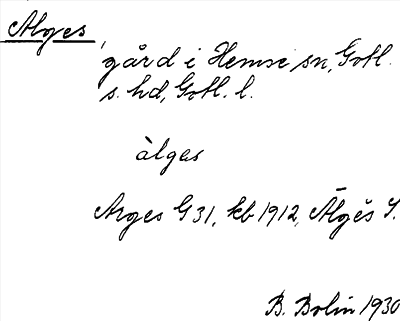 Alges,
gård i Hemse sn, Gotl.
s. hd, Gotl. l.
àlgas
Arges G 31, kb 1912, Älgĕs S.
B. Bolin 1930